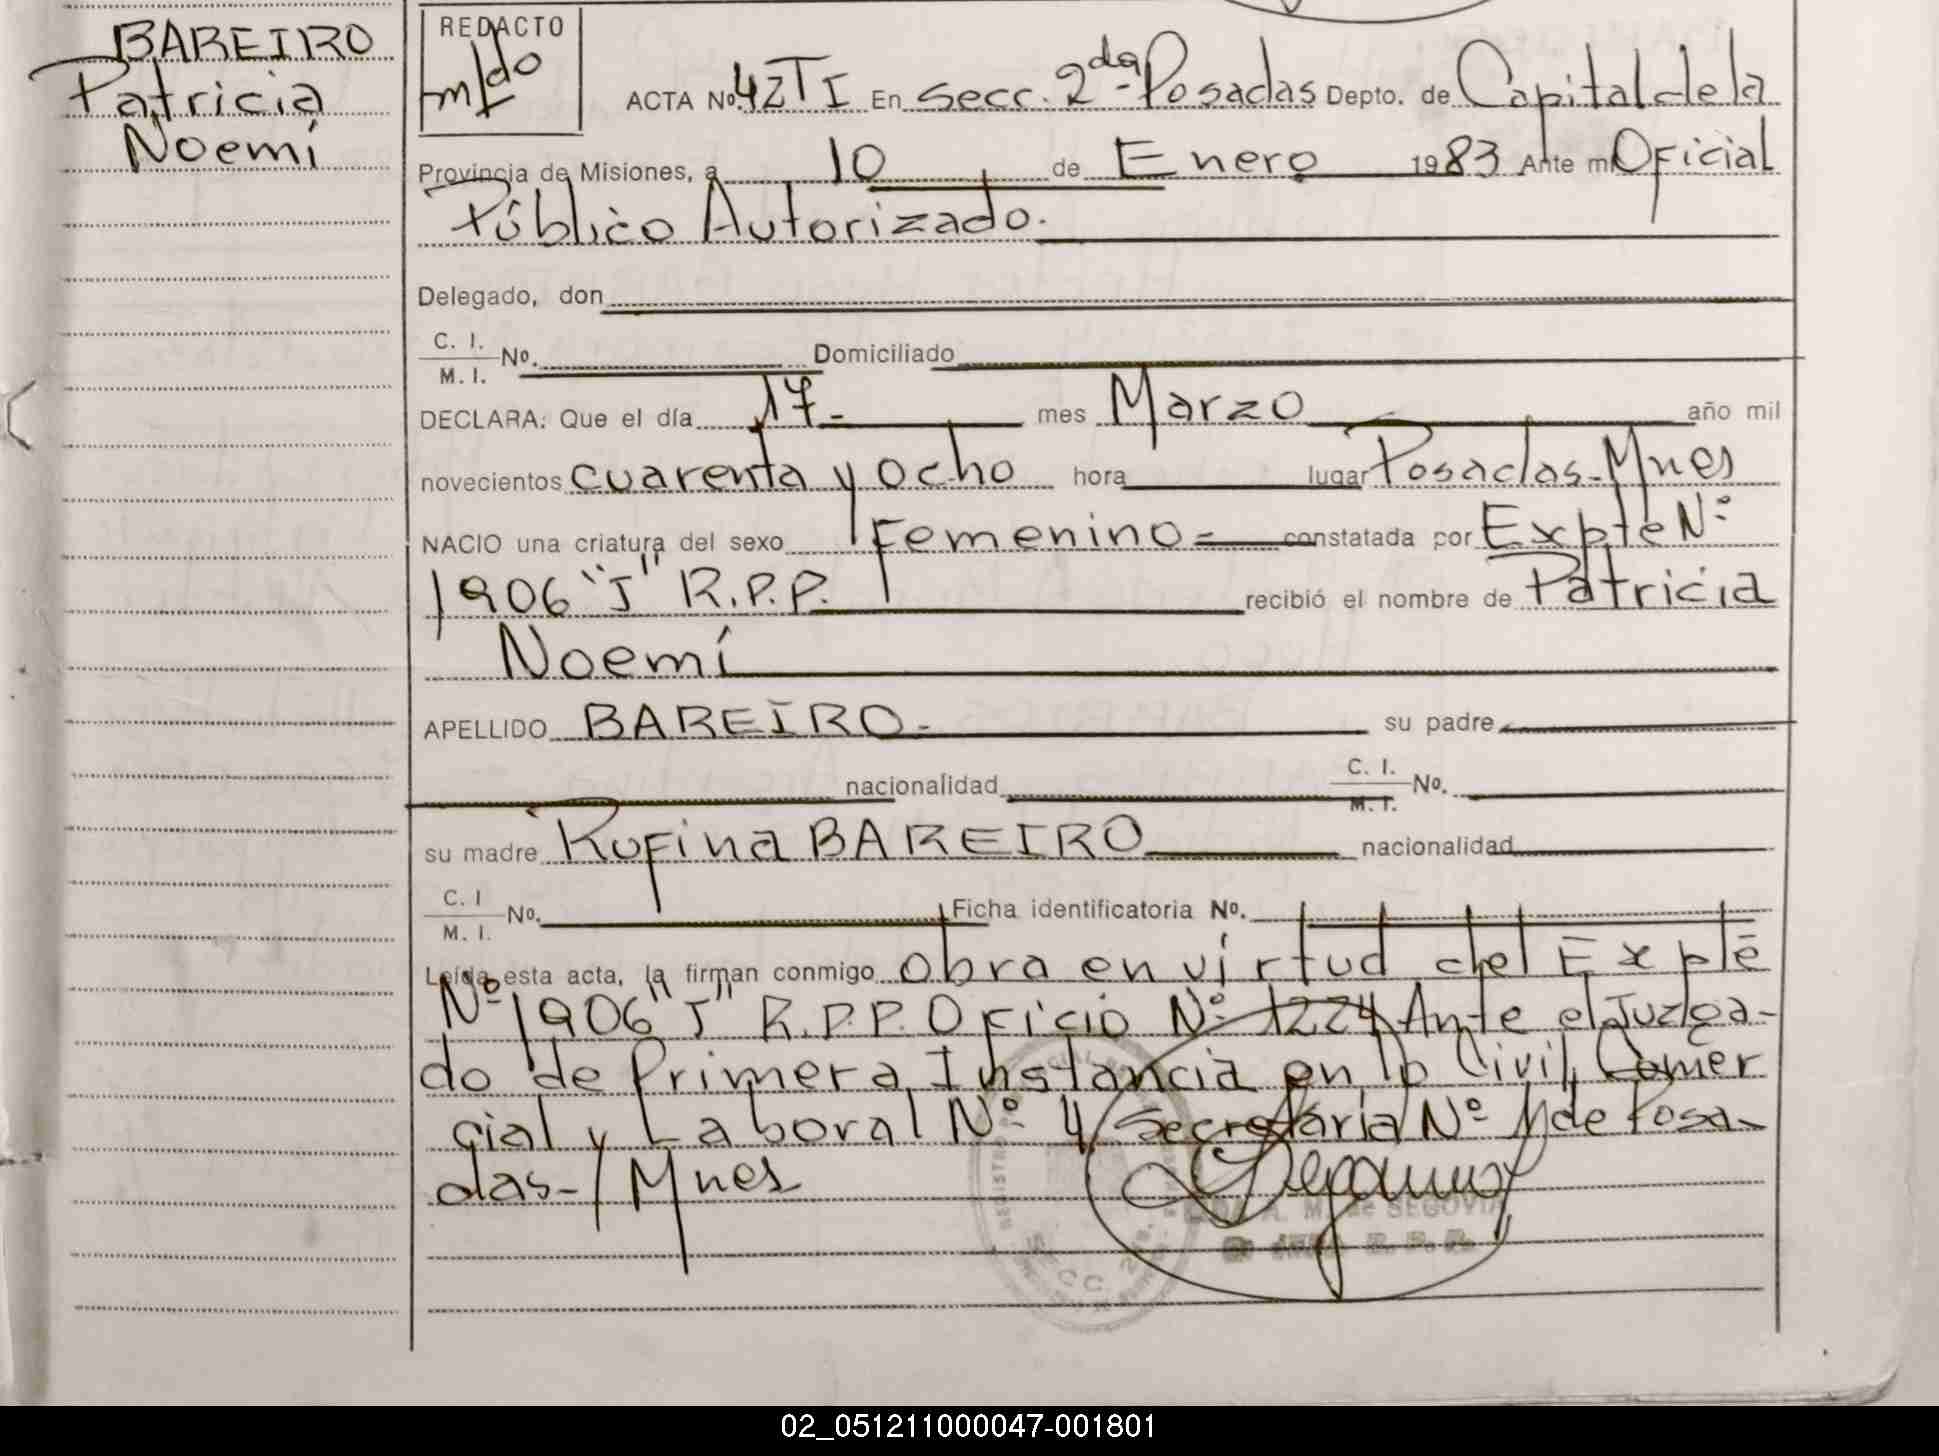 BAREIRO
Patricia
Noemí
REDACTO
ACTA Nº 42 T I En Secc. 2da- Posadas Depto. de Capital de la
Provincia de Misiones, a 10 de Enero 1983 Ante mi Oficial
Público Autorizado.
Delegado, don
C. I.
M. I. Nº. Domiciliado
DECLARA: Que el día 17- mes Marzo año mil
novecientos cuarenta y ocho hora lugar Posadas-Mnes
NACIO una criatura del sexo Femenino= constatada por Expte Nº
1906 "J" R.P.P. recibió el nombre de Patricia
Noemí
APELLIDO BAREIRO- su padre
nacionalidad C. I. M. I. Nº.
su madre Rufina BAREIRO nacionalidad
C. I M. I. Nº. Ficha identificatoria Nº.
Leída esta acta, la firman conmigo obra en virtud del Expte
Nº 1906 "J" R.P.P. Oficio Nº 1224 Ante el Juzga-
do de Primera Instancia en lo Civil, Comer
cial y Laboral Nº 4 Secretaría Nº 1 de Posa-
das-/Mnes
A. M. de SEGOVIA
SECC.
02_051211000047-001801